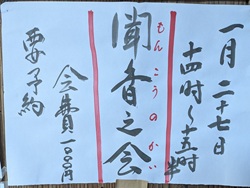 一月二十七日
十四時〜十五時半
聞香之会
もんこうのかい
会費一、〇〇〇円
要予約